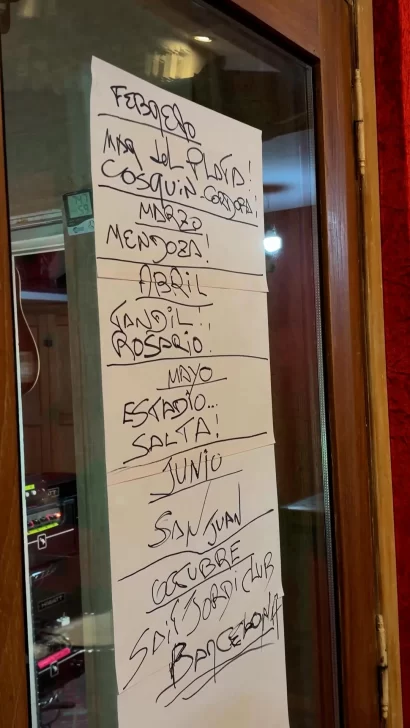 FEBRERO
MAR del PLATA!
COSQUIN-CORDOBA!
MARZO
MENDOZA!
ABRIL
TANDIL!
ROSARIO!
MAYO
ESTADIO...
SALTA!
JUNIO
SAN JUAN
OCTUBRE
SAiNT JORDI CLUB
BARCELONA